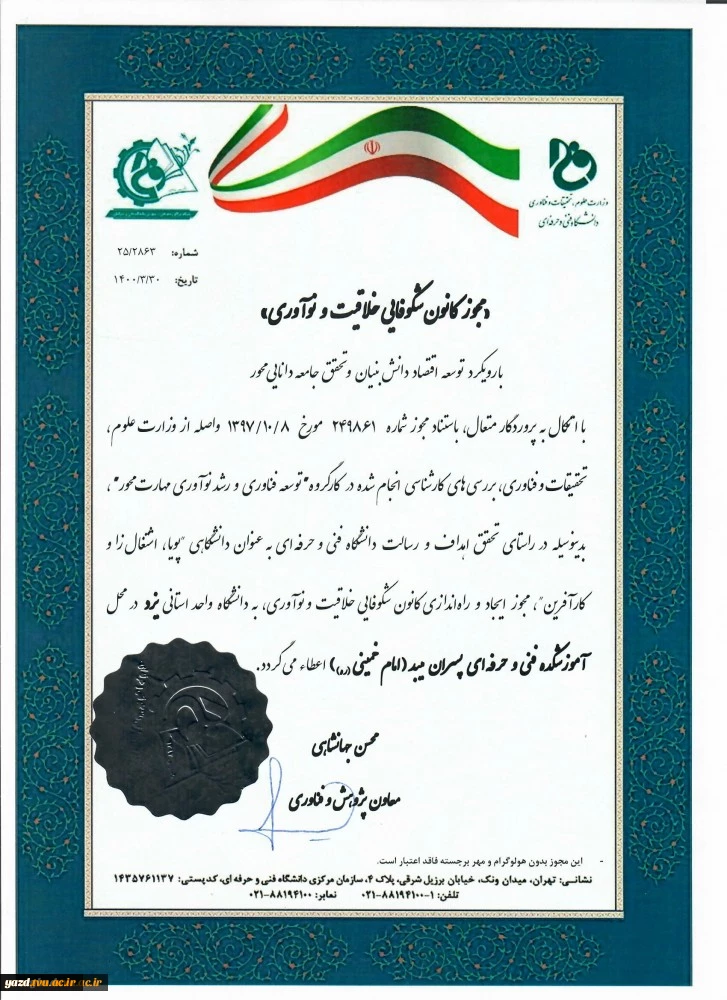 وزارت علوم، تحقیقات و فناوری
دانشگاه فنی و حرفه‌ای
شماره: ۲۵/۲۸۶۳
تاریخ: ۱۴۰۰/۳/۳۰
«مجوز کانون شکوفایی خلاقیت و نوآوری»
با رویکرد توسعه اقتصاد دانش بنیان و تحقق جامعه دانایی محور
با اتکال به پروردگار متعال، باستناد مجوز شماره ۲۴۹۸۶۱ مورخ ۱۳۹۷/۱۰/۸ واصله از وزارت علوم،
تحقیقات و فناوری، بررسی های کارشناسی انجام شده در کارگروه "توسعه فناوری و رشد نوآوری مهارت محور"،
بدینوسیله در راستای تحقق اهداف و رسالت دانشگاه فنی و حرفه ای به عنوان دانشگاهی "پویا، اشتغال زا و
کارآفرین"، مجوز ایجاد و راه‌اندازی کانون شکوفایی خلاقیت و نوآوری، به دانشگاه واحد استانی یزد در محل
آموزشکده فنی و حرفه ای پسران میبد (امام خمینی (ره)) اعطاء می گردد.
محسن جهانشاهی
معاون پژوهش و فناوری
- این مجوز بدون هولوگرام و مهر برجسته فاقد اعتبار است.
نشانی: تهران، میدان ونک، خیابان برزیل شرقی، پلاک ۴، سازمان مرکزی دانشگاه فنی و حرفه ای، کدپستی: ۱۴۳۵۷۶۱۱۳۷
تلفن: ۱-۸۸۱۹۴۱۰۰-۰۲۱ نمابر: ۸۸۱۹۴۱۰۰-۰۲۱
yazd.tvu.ac.ir